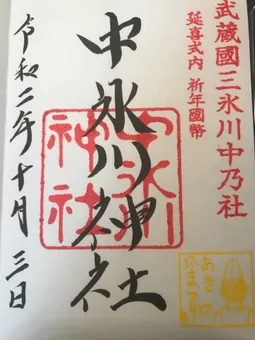 武蔵國三氷川中乃社
延喜式内 祈年國幣
中氷川神社
中氷川
神社
令和二年十月三日
あき